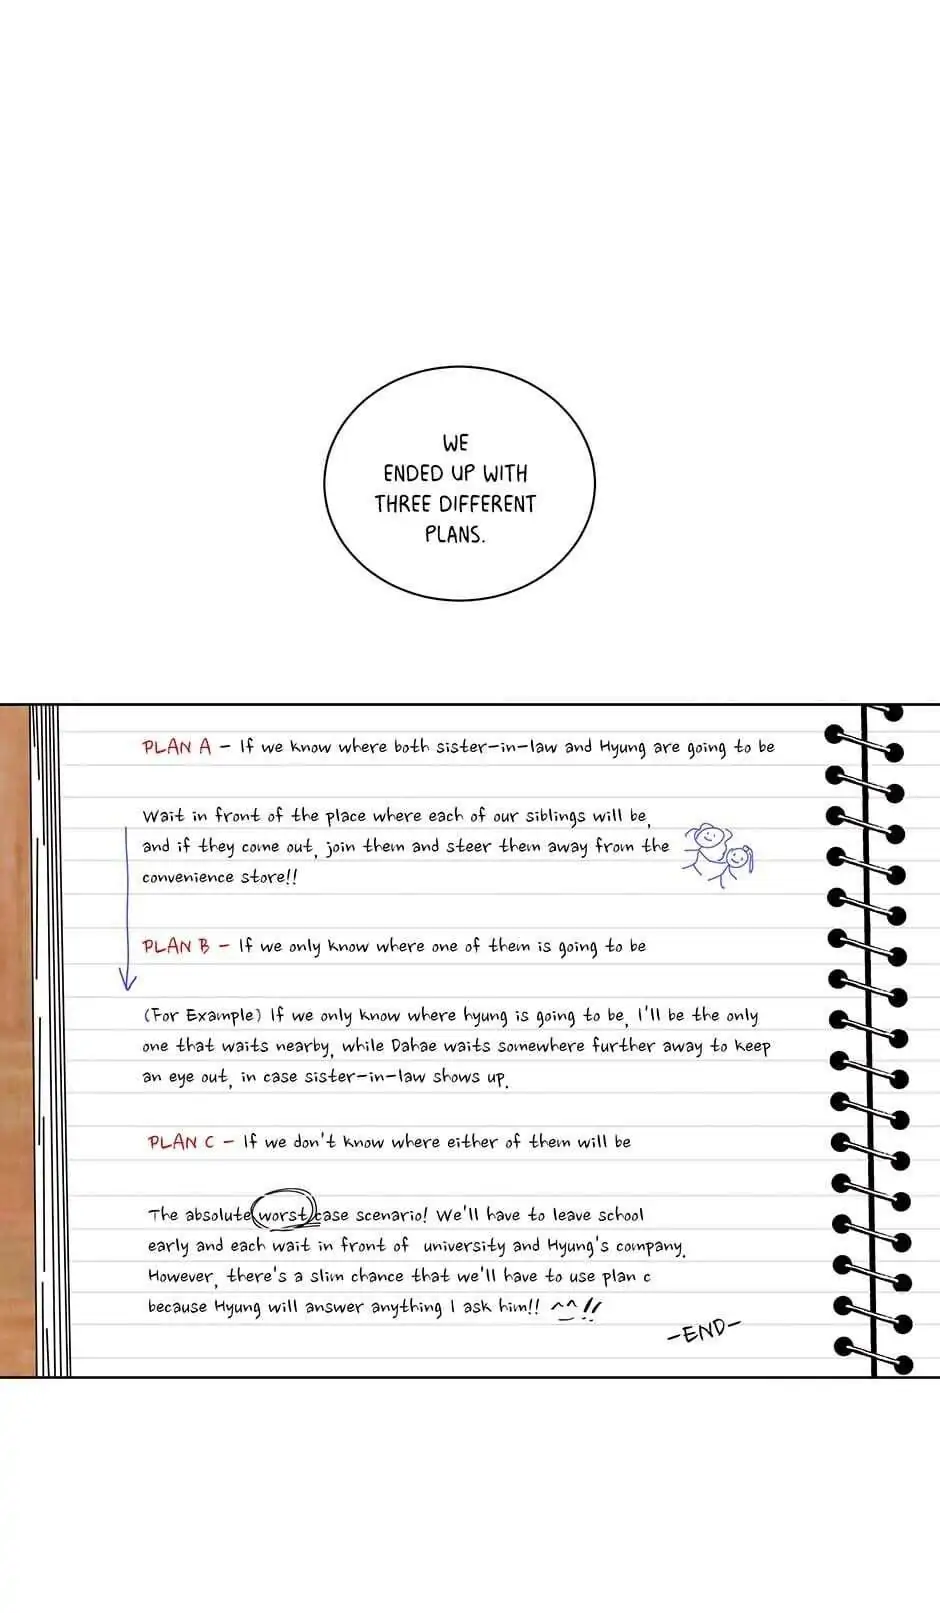 WE
ENDED UP WITH
THREE DIFFERENT
PLANS.
PLAN A - If we know where both sister-in-law and Hyung are going to be
Wait in front of the place where each of our siblings will be,
and if they come out, join them and steer them away from the
convenience store!!
PLAN B - If we only know where one of them is going to be
(For Example) If we only know where hyung is going to be, I'll be the only
one that waits nearby, while Dahae waits somewhere further away to keep
an eye out, in case sister-in-law shows up.
PLAN C - If we don't know where either of them will be
The absolute worst case scenario! We'll have to leave school
early and each wait in front of university and Hyung's company.
However, there's a slim chance that we'll have to use plan c
because Hyung will answer anything I ask him!! ^_^!!
-END-